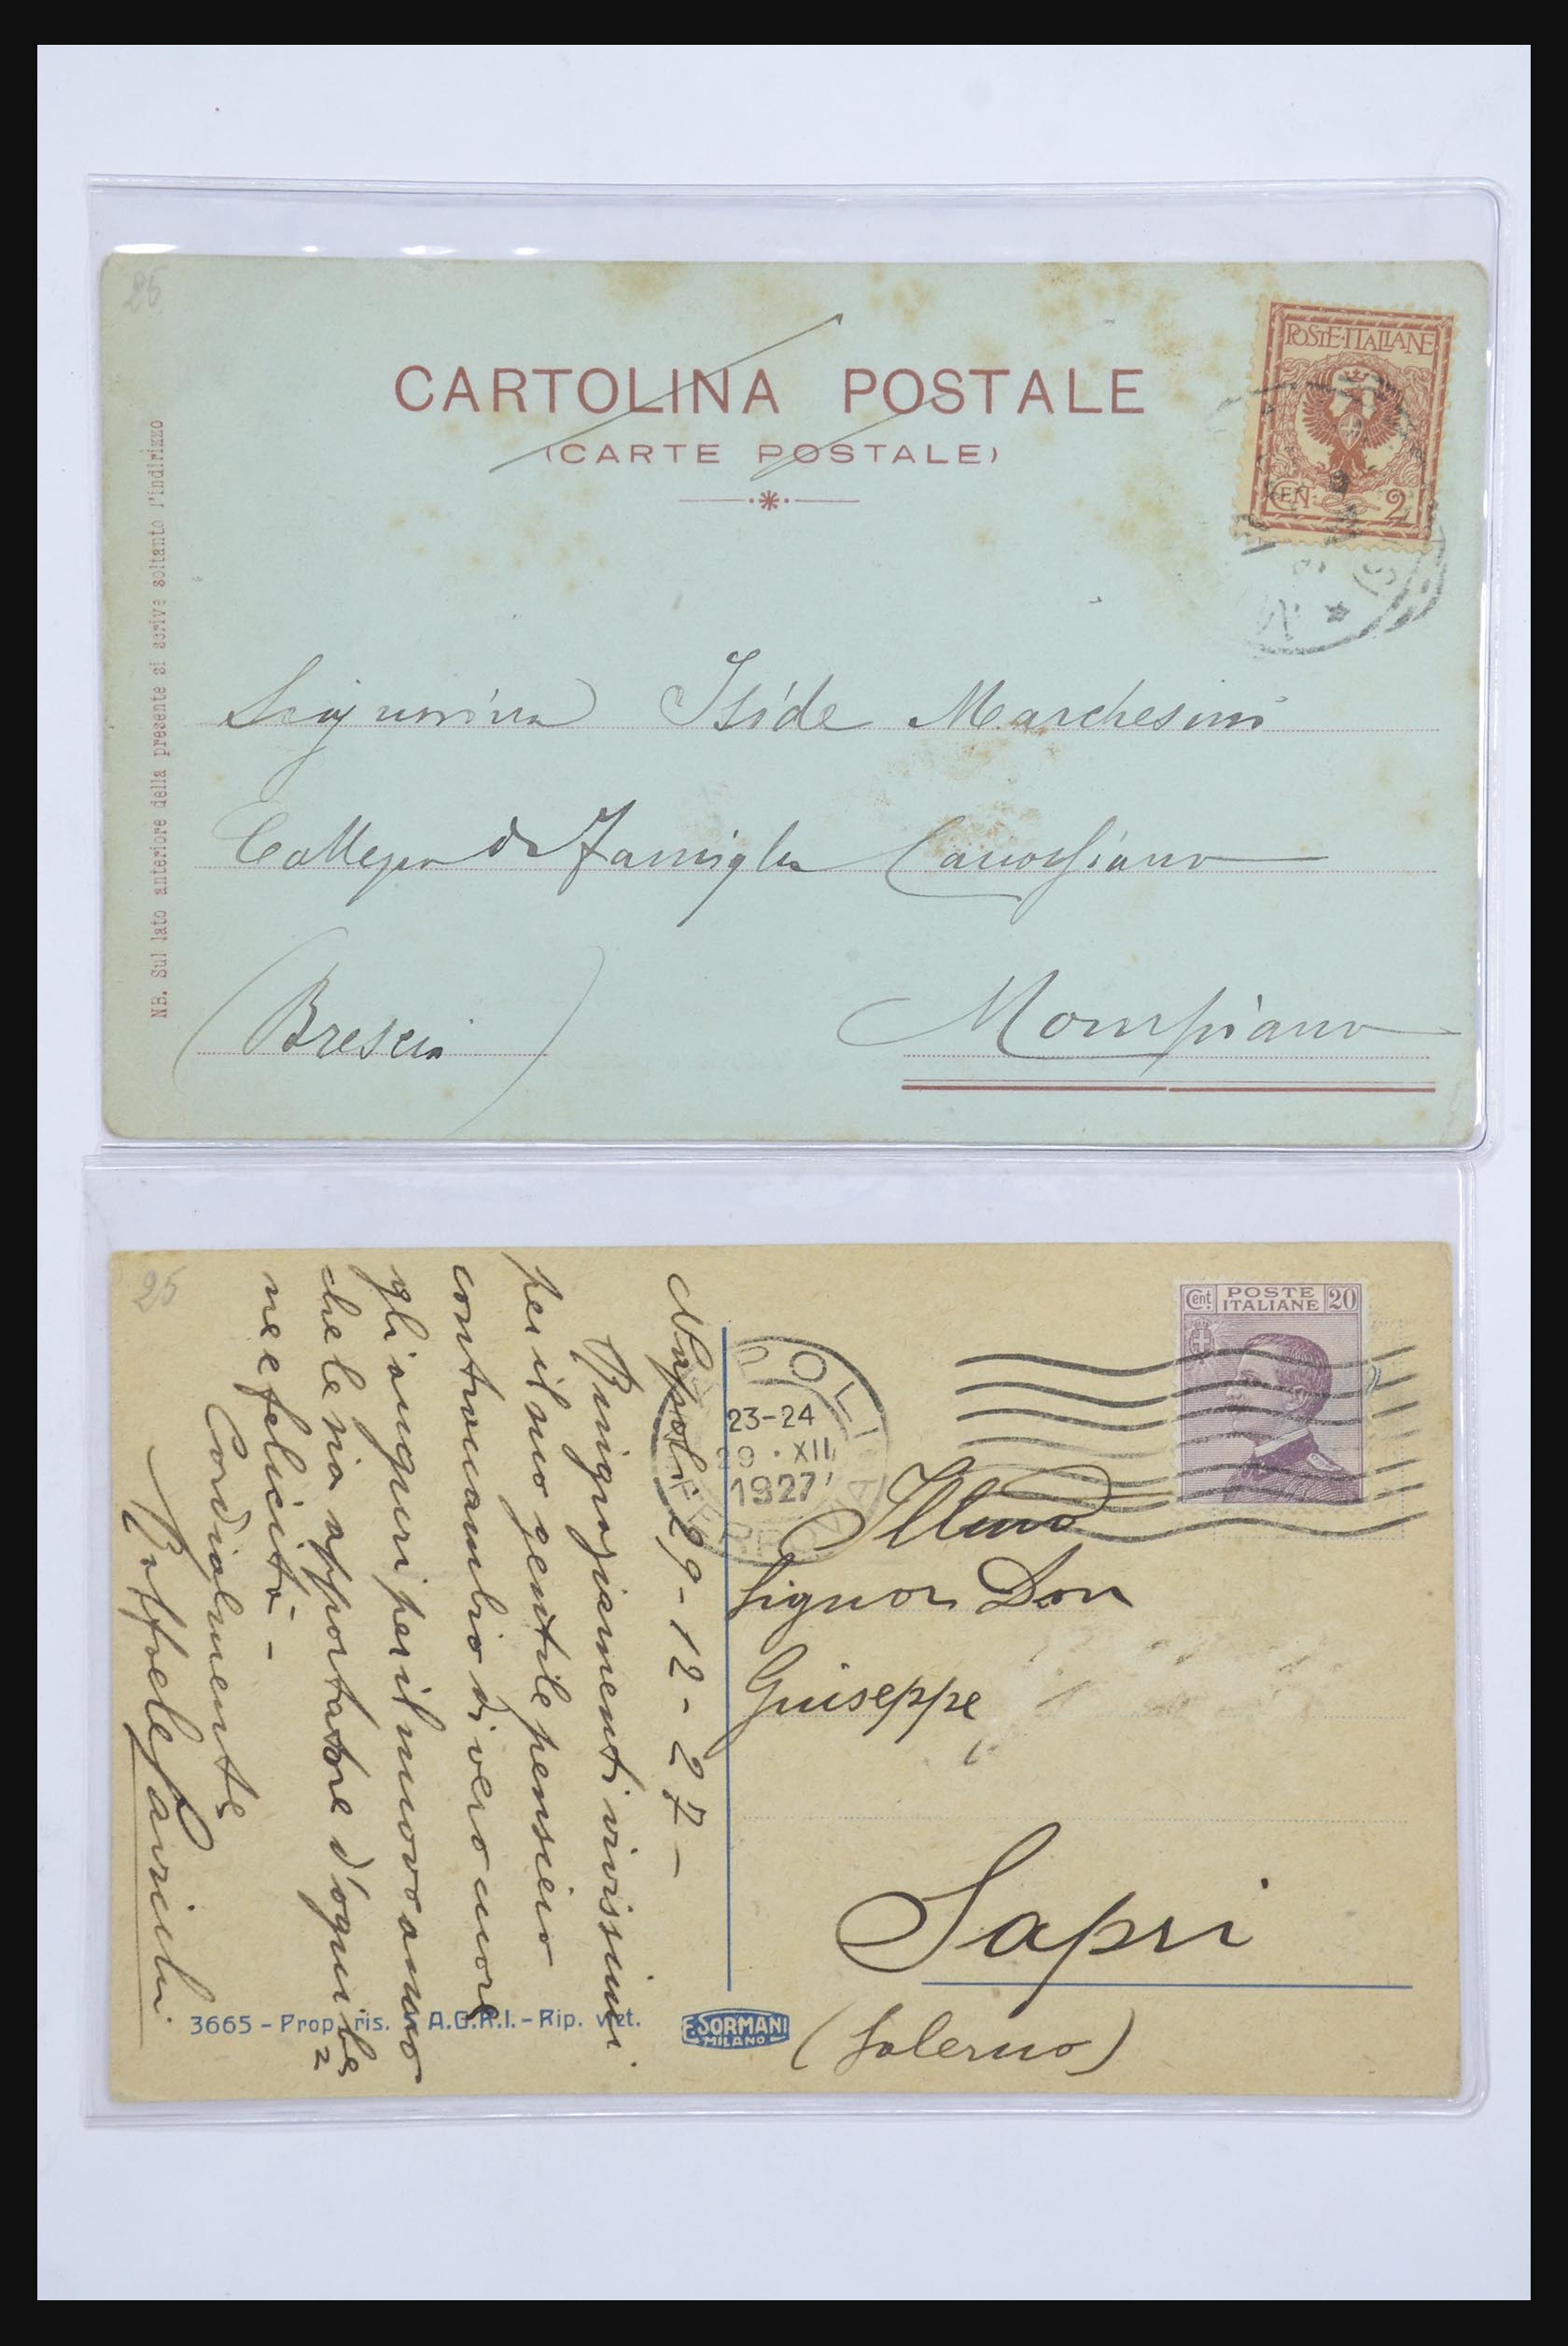 25
CARTOLINA POSTALE
(CARTE POSTALE)
POSTE·ITALIANE
CEN: 2
NB. Sul lato anteriore della presente si scrive soltanto l'indirizzo
Signorina Iside Marchesini
Collegio di Famiglia Canossiano
(Brescia) Mompiano
25
Cent. POSTE ITALIANE 20
NAPOLI
23-24
29 · XII
1927
FERROVIA
Napoli 29-12-27-
Ringraziamenti vivissimi
per il suo gentile pensiero
contraccambio di vero cuore
gli auguri per il nuovo anno
che le sia apportatore d'ogni be
ne e felicità -
Cordialmente
Illmo
Signor Don
Giuseppe
Sapri
(Salerno)
3665 - Prop. ris. A.G.R.I. - Rip. viet.
E. SORMANI
MILANO